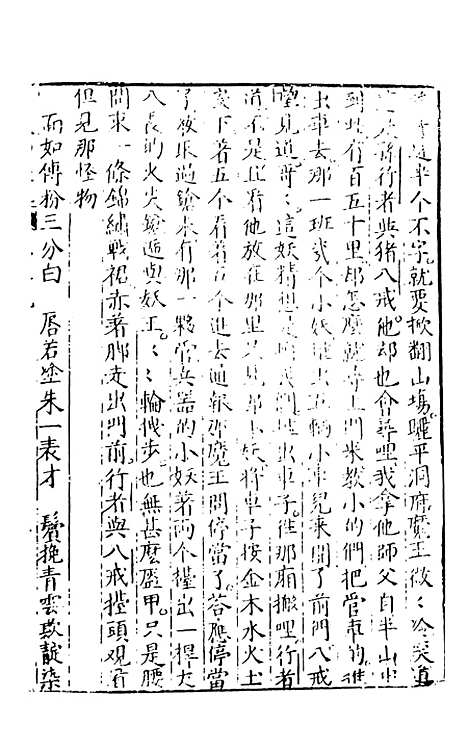 道半个不字就要掀翻山塲躧平洞府魔王微〻冷笑道
孫行者與猪八戒他却也會尋哩我拿他師父自半山中
到此有百五十里却怎麼就尋上門來教小的們把管車的
出車去那一班幾个小妖推出五輛小車兒來開了前門八戒
望見道哥〻這妖精想是怕我們推出車子往那廂搬哩行者
道不是且看他放在那里只見那小妖將車子按金木水火土
安下著五个看着五个進去通報那魔王問停當了答應停當
了教取過鎗來有那一夥管兵器的小妖著兩个擡出一捍丈
八長的火尖鎗遞與妖王〻〻輪拽步也無甚麼盔甲只是腰
間束一條錦繡戰裙赤著脚走出門前行者與八戒擡頭觀看
但見那怪物
面如傅粉三分白　唇若塗朱一表才　鬢挽青雲欺靛染